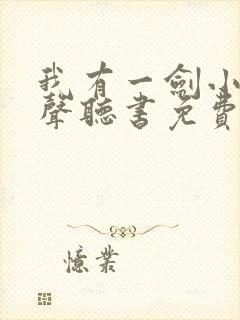 我有一劍小
聲聽書免費
憶業